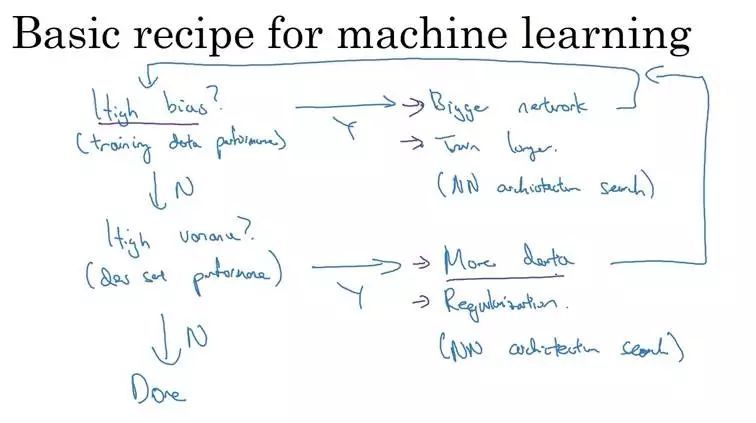 Basic recipe for machine learning
High bias?
(training data performance)
Y
→ Bigger network
→ Train longer.
(NN architecture search)
N
High variance?
(dev set performance)
Y
→ More data
→ Regularization.
(NN architecture search)
N
Done